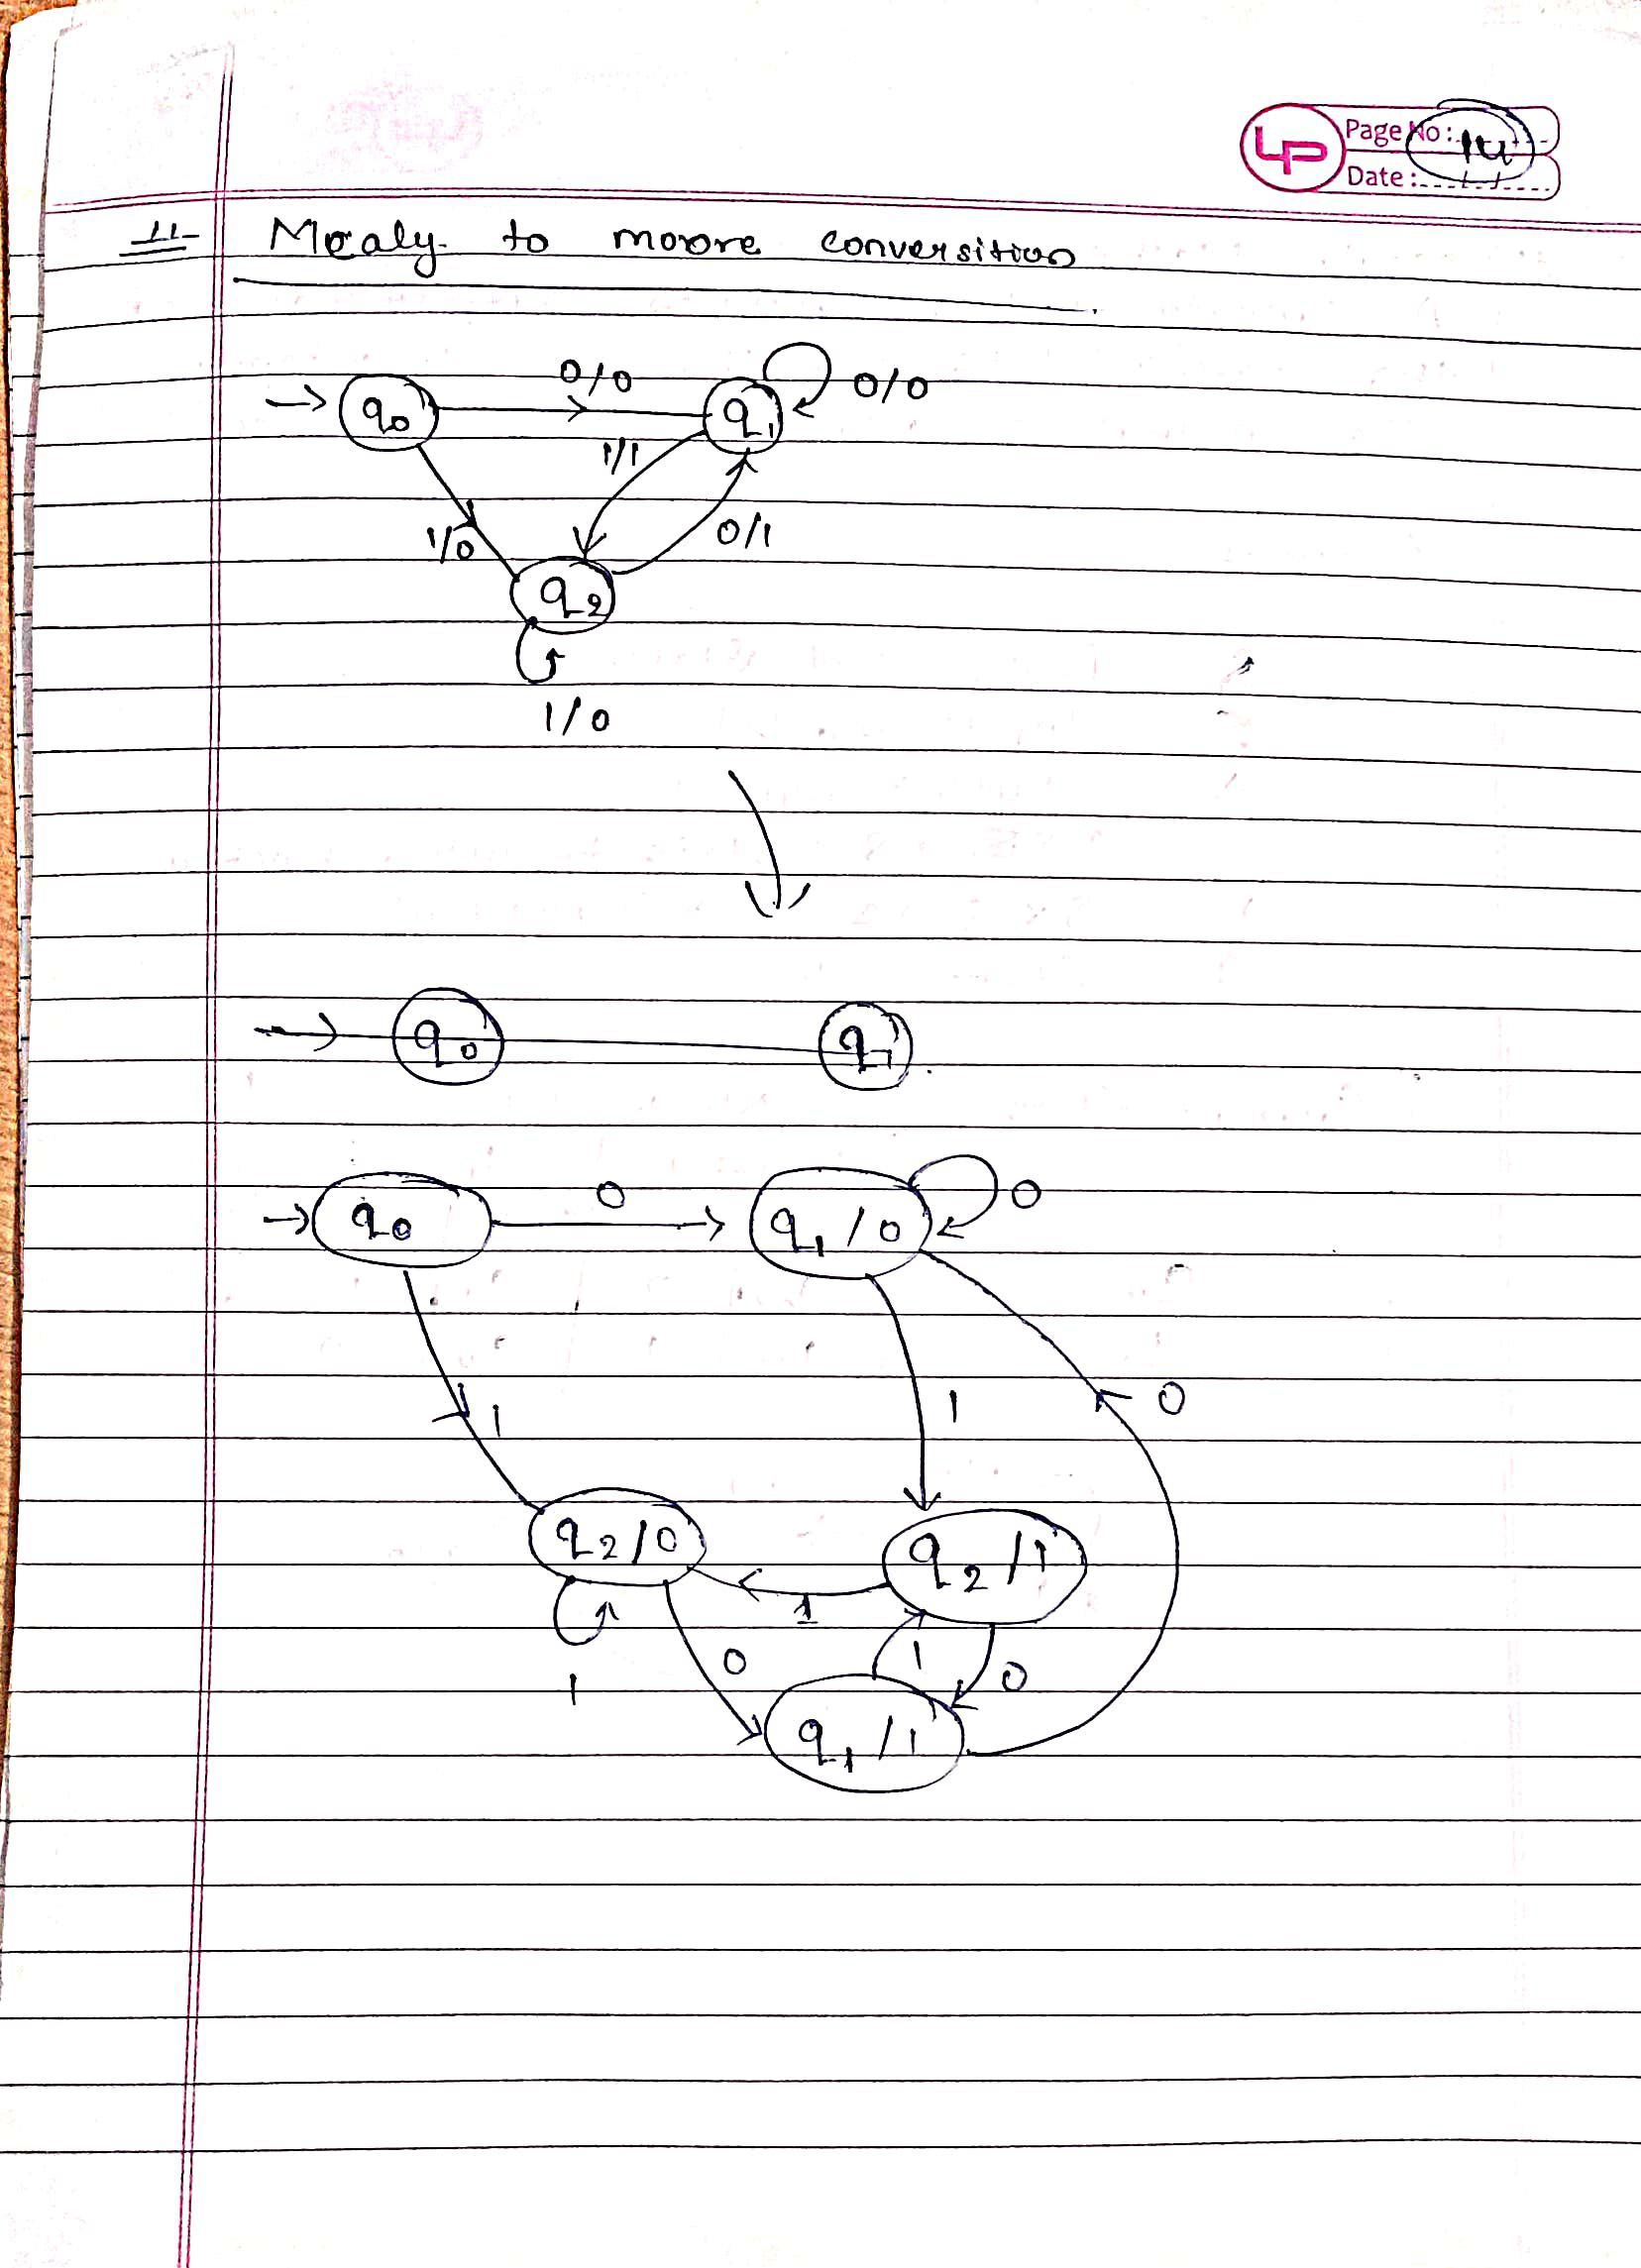 LP Page No: 14
Date:
11 Mealy to moore conversition
0/0
q0 q1 0/0
1/1
1/0 0/1
q2
1/0
q0 q1
q0 0 q1/0 0
1 1 0
q2/0 q2/1
1
1 0 1 0
q1/1